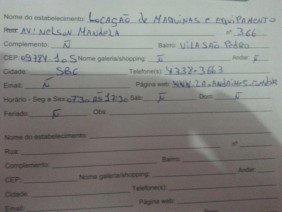 Nome do estabelecimento: Locação de Maquinas e Equipamento
Rua: AV: Nelson Mandela nº 366
Complemento: Ñ Bairro: Vila São Pedro
CEP: 09784-105 Nome galeria/shopping: Ñ Andar: Ñ
Cidade: SBC Telefone(s): 4338-3663
Email: Ñ Página web: www.
Horário - Seg a Sex: 07:30 às 17:30 Sáb: Ñ Dom: Ñ
Feriado: Ñ Obs:
Nome do estabelecimento:
Rua: nº
Complemento: Bairro:
CEP: Nome galeria/shopping: Andar:
Cidade: Telefone(s):
Email: Página web: